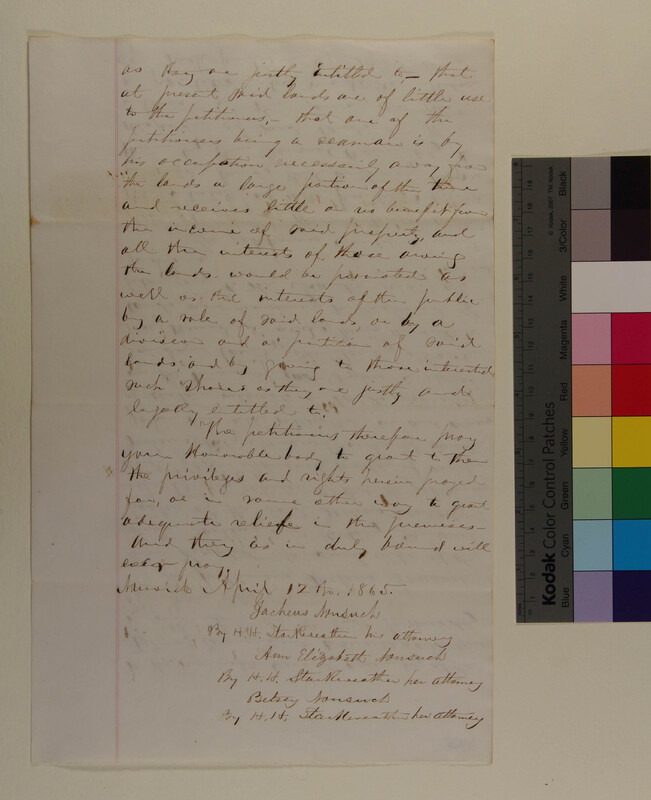 as they are justly intitled to, – that
at present said lands are of little use
to the petitioners, – that one of the
petitioners being a seaman is by
his occupation necessarily away from
the lands a large portion of the time
and receives little or no benefit from
the income of said property, and
all the interests of those owning
the lands would be promoted as
well as the interests of the public
by a sale of said lands, or by a
division and a petition of said
lands and by giving to those interested
such shares as they are justly and
legally entitled to.
The petitioners therefore pray
your Honorable body to grant to them
the privileges and rights herein prayed
for, or in some other way to grant
adequate relief in the premises –
And they as in duty bound will
ever pray.
Norwich April 12th. 1865.
Zacheus Nonsuch
By H. H. Starkweather his attorney
Ann Elizabeth Nonsuch
By H. H. Starkweather her attorney
Betsey Nonsuch
By H. H. Starkweather her attorney
Kodak Color Control Patches
© Kodak, 2007 TM: Kodak
Blue
Cyan
Green
Yellow
Red
Magenta
White
3/Color
Black